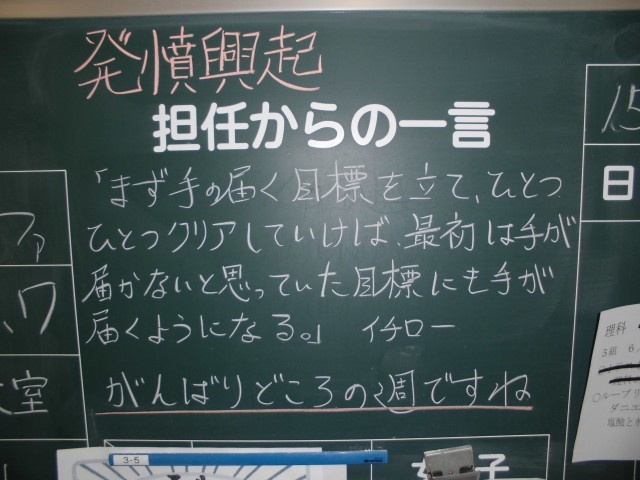 発憤興起
担任からの一言
「まず手の届く目標を立て、ひとつ
ひとつクリアしていけば、最初は手が
届かないと思っていた目標にも手が
届くようになる。」 イチロー
がんばりどころの週ですね
15
日
ファ
室
理科
3組 6
〇ルーブリ
ダニエ
塩酸と水
3-5
女子